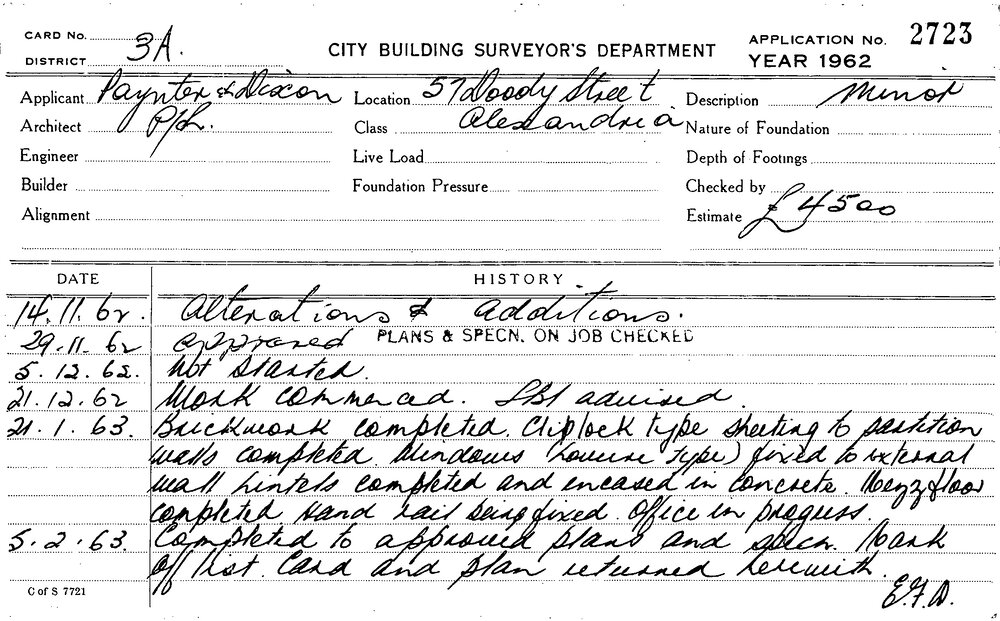 CARD No.
DISTRICT 3A.
CITY BUILDING SURVEYOR'S DEPARTMENT
APPLICATION No. 2723
YEAR 1962
Applicant Paynter & Dixon Location 57 Doody Street Description Minor
Architect P/L. Class Alexandria Nature of Foundation
Engineer Live Load Depth of Footings
Builder Foundation Pressure Checked by
Alignment Estimate £4500
DATE HISTORY
14.11.62. Alterations & additions.
29.11.62 approved PLANS & SPECN. ON JOB CHECKED
5.12.62. Not Started.
21.12.62 Work commenced. advised.
21.1.63. Brickwork completed. Cliplock type sheeting to partition
walls completed. Windows (Louvre type) fixed to external
wall Lintels completed and encased in concrete. Mezz floor
completed hand rail being fixed. Office in progress.
5.2.63. Completed to approved plans and specn. Mark
off list. Card and plan returned herewith.
C of S 7721 E.F.D.